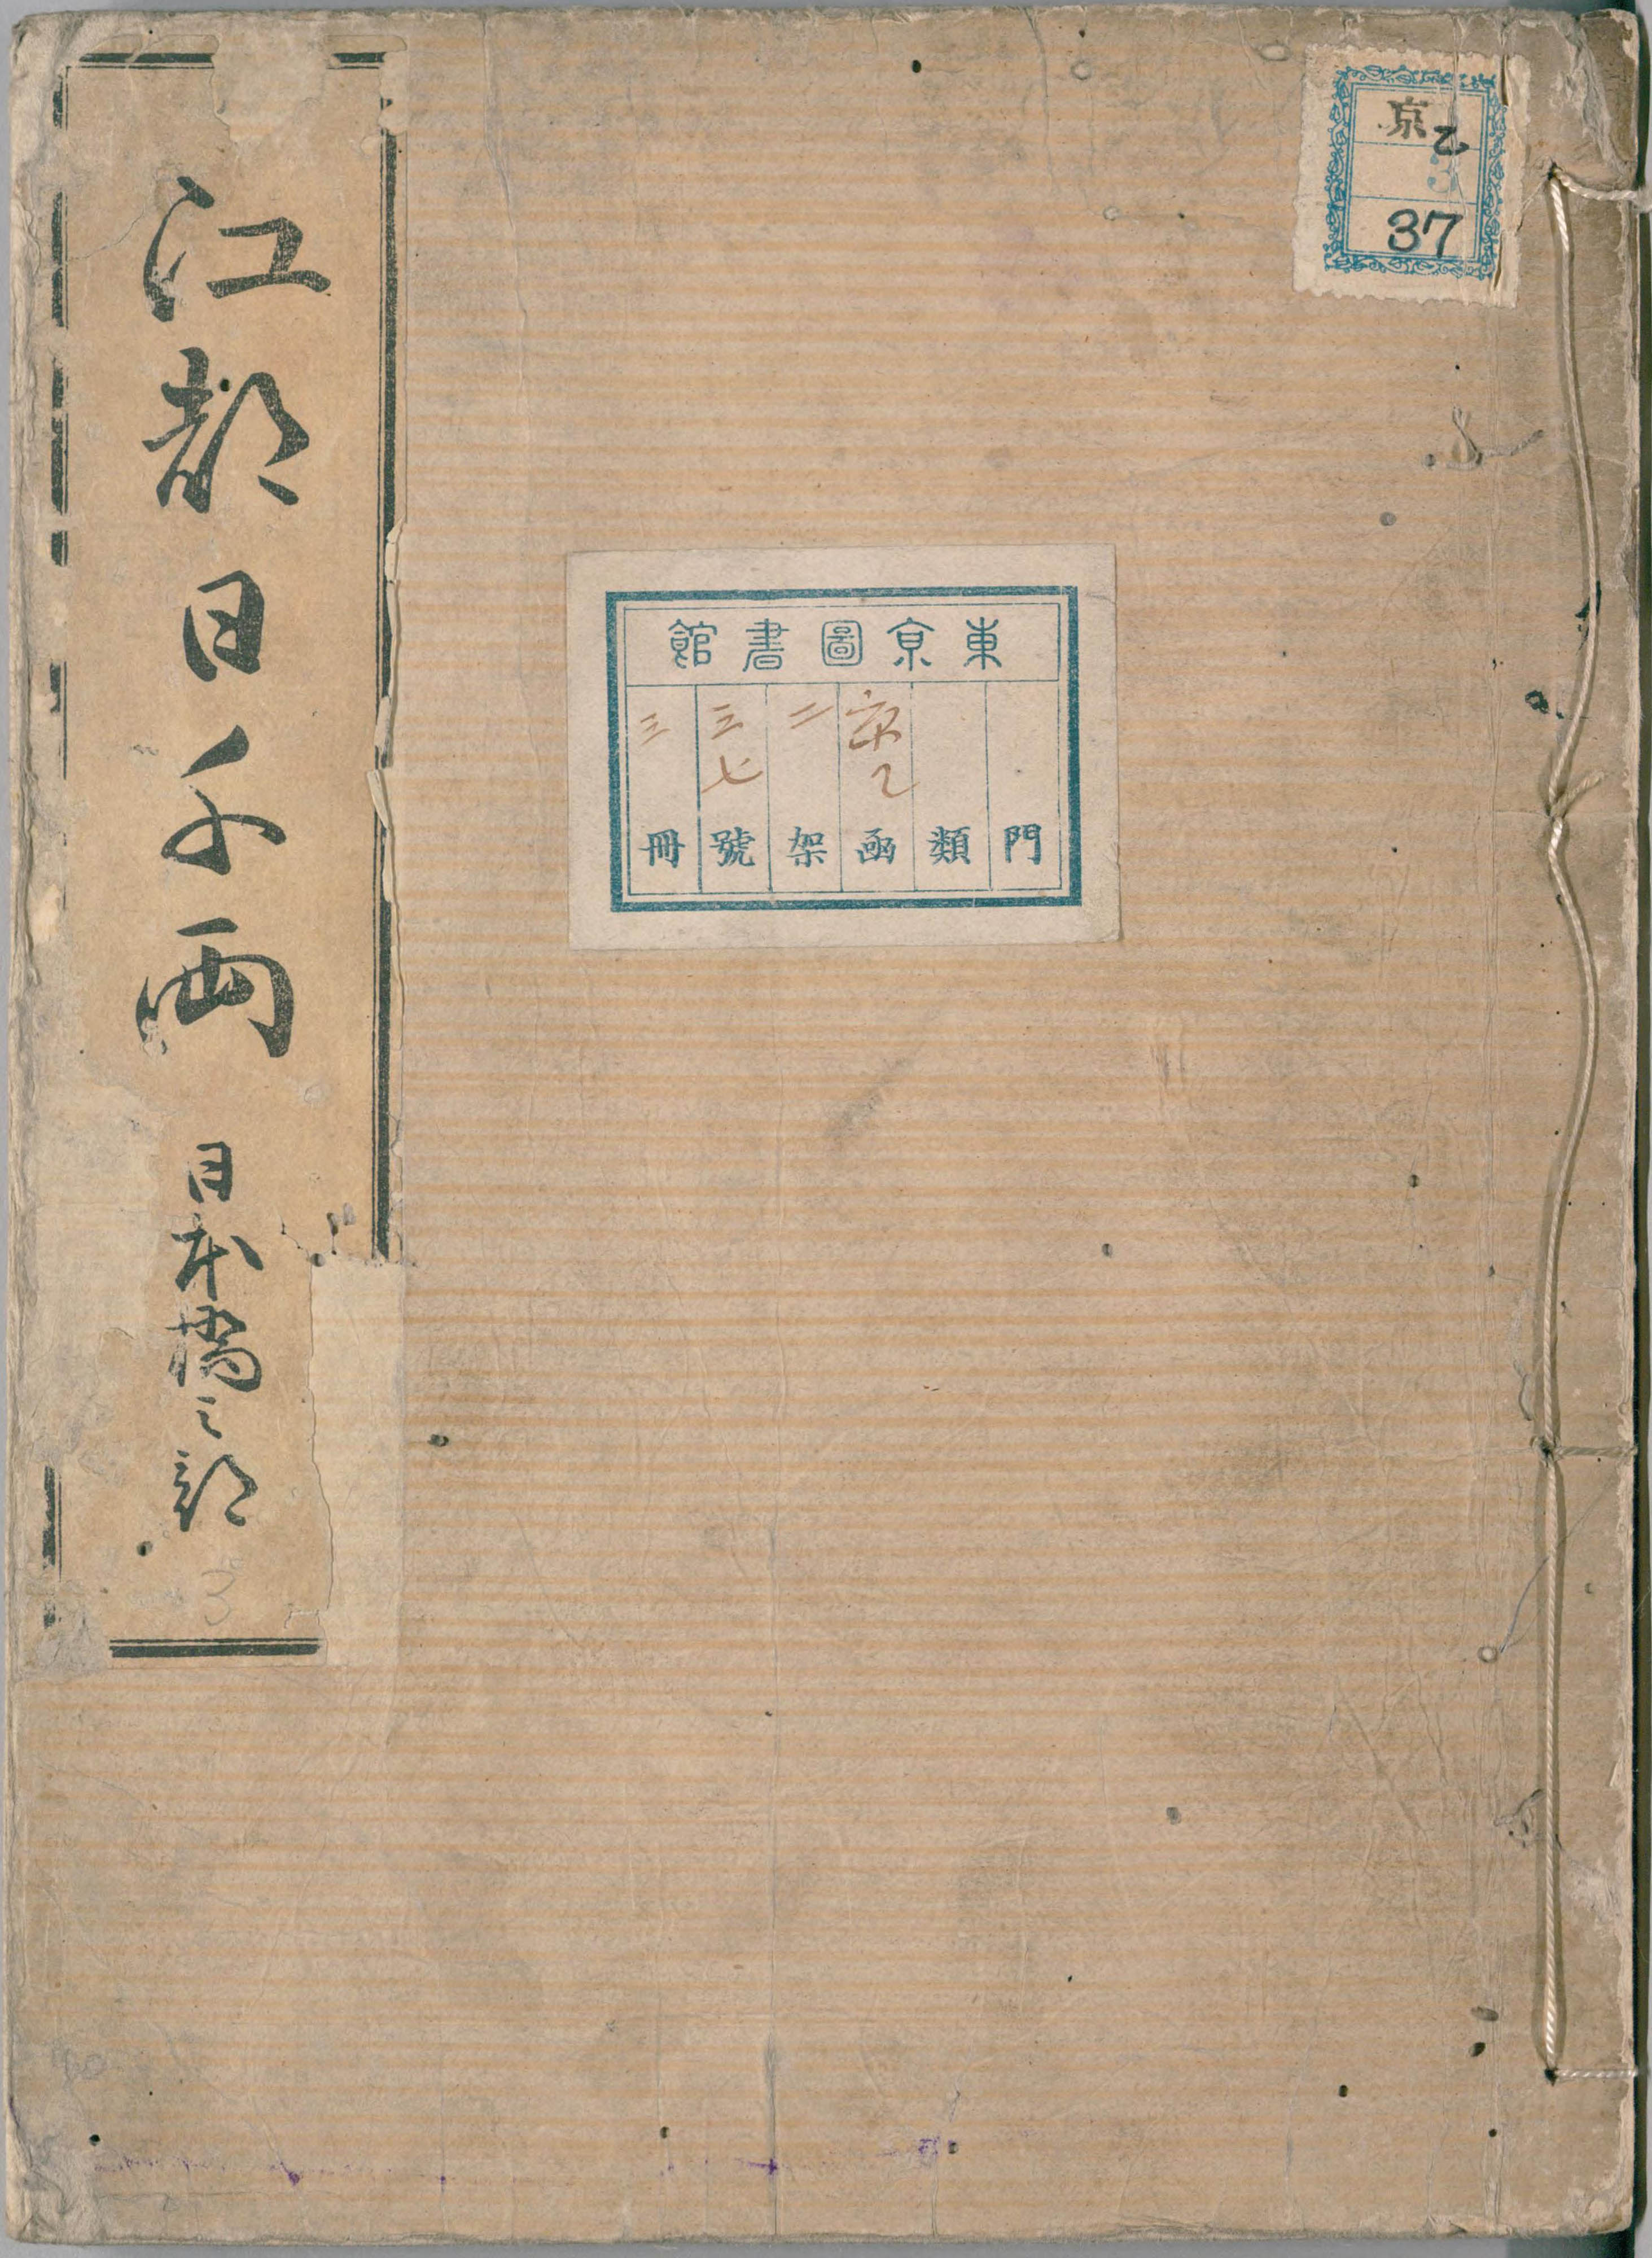 京乙
3
37
東京圖書館
門
類
京乙函
二架
三七號
三冊
江都日千両 日本橋之部
3